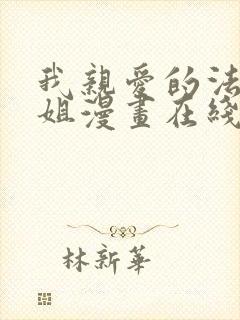 我親愛的法
姐漫畫在綫
林新華